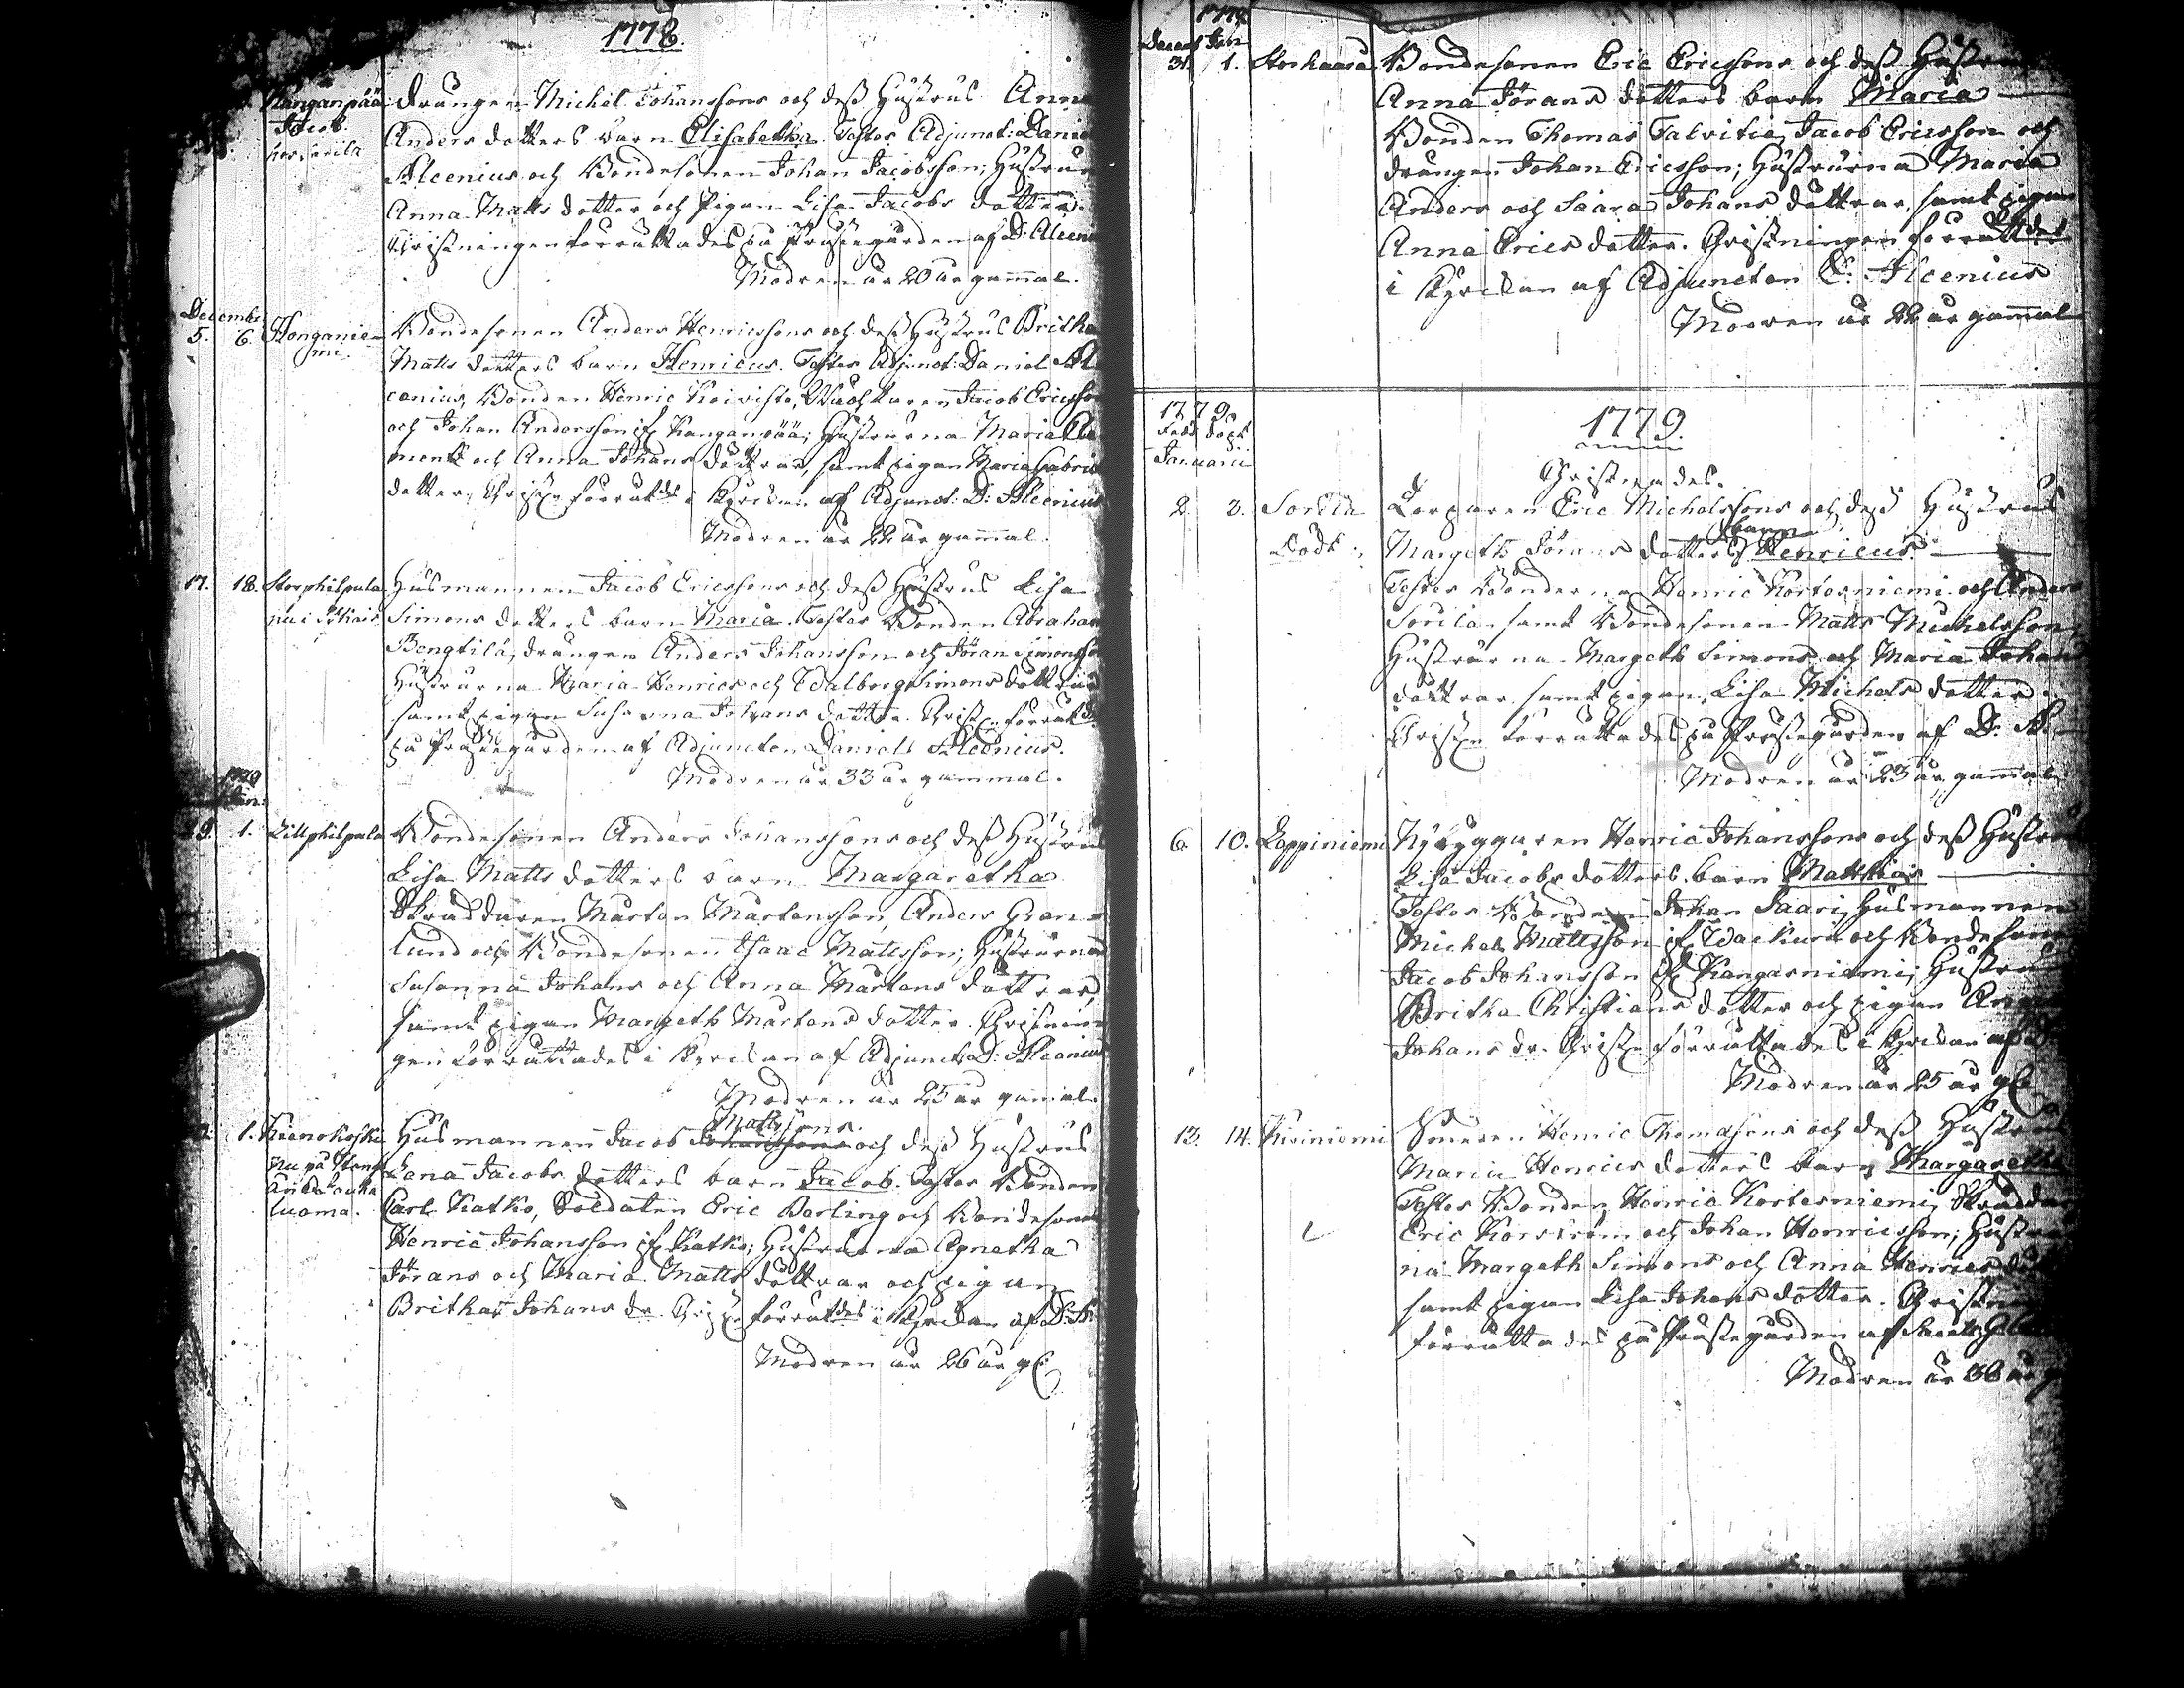 1778.
Kanganpää Drängen Michel Johanssons och dess Hustrus Anna
Anders dotters barn Elisabetha. Testes Adjunct: Daniel
Alcenius och Bondesonen Johan Jacobsson; Hustrun
Anna Matts dotter och Pigan Lisa Jacobs dotter.
Christningen förrättades på Prästegården af D: Alceni
Modren är 20 år gammal.
Decembr
5. 6. Honganie- Bondesonen Anders Henricssons och dess Hustrus Britha
mi. Matts dotters barn Henricus. Testes Adjunct: Daniel Al-
cenius, Bonden Henric Koivisto, Jacob Ericsson
och Johan Andersson ifr Kanganpää; Hustrurna Maria Cle
ments och Anna Johans döttrar, samt pigan Maria Gabriels
dotter, Christn förrättdes i Kyrckan af Adjunct: D: Alcenius
Modren är 22 år gammal.
17. 18. Storphilpula Husmannen Jacob Ericssons och dess Hustrus Lisa
nu i Simons dotters barn Maria. Testes Bonden Abraham
Bengtilä, drängen Anders Johansson och Jöran Simonsson
Hustrurna Maria Henrics och Walborg Simons döttrar
samt pigan Susanna Johans dotter. Christn förrättdes
på Prästegården af Adjuncten Daniel Alcenius.
Modren är 33 år gammal.
1779
Jan:
29. 1. Lillphilpula Bondesonen Anders Johanssons och dess Hustrus
Lisa Matts dotters barn Margaretha
Skräddaren Mårten Mårtensson, Anders Gran-
lund och Bondesonen Isaac Mattsson; Hustrurna
Susanna Johans och Anna Mårtens döttrar,
samt pigan Margeth Mårtens dotter. Christnin-
gen förrättades i Kyrckan af Adjunct: D: Alcenius
Modren är 25 år gammal.
Mattssons.
1. Kienokoski Husmannen Jacob Johanssons och dess Hustrus
nu på Lena Jacobs dotters barn Jacob. Testes Bonden
Carl Katko, Soldaten Eric Berling och Bondesonen
luoma. Henric Johansson ifr Katko; Hustrurna Agnetha
Jörans och Maria Matts döttrar och pigan
Britha Johans dr. Christn förrättdes i Kyrckan af D: Al
Modren är 26 år gl:
1779
Decemb Jan
31. 1. Storhaara Bondesonen Eric Ericssons och dess Hustrus
Anna Jörans dotters barn Maria
Bonden Thomas Talvitie, Jacob Ericsson och
drängen Johan Ericsson; Hustrurna Maria
Anders och Saara Johans döttrar, samt pigan
Anna Erics dotter. Christningen förrättdes
i Kyrckan af Adjuncten D: Alcenius
Modren är 22 år gammal
1779
Född döpt
Januarii
1779.
Christnades.
2. 3. Sorila Torparen Eric Michelssons och dess Hustrus
barn
Margeth Jörans dotters Henricus.
Testes Bönderna Henric Kortesniemi och Anders
Sorila samt Bondesonen Matts Michelsson,
Hustrurna Margeth Simons och Maria Johans
döttrar samt pigan, Lisa Michels dotter.
Christn förrättades på Prästegården af D: Al
Modren är 23 år gammal.
6. 10. Lappiniemi Nybyggaren Henric Johanssons och dess Hustrus
Lisa Jacobs dotters barn Matthias
Testes Bonden Johan Saari, Husmannen
Michel Mattsson ifr Wackuri och Bondesonen
Jacob Johansson ifr Kangasniemi; Hustrun
Britha Christians dotter och pigan Anna
Johans dr. Christn förrättades i Kyrckan af
Modren är 25 år gl:
13. 14. Kiviniemi Smeden Henric Thomassons och dess Hustrus
Maria Henrics dotters barn Margaretha
Testes Bonden Henric Kortesniemi, Skräddaren
Eric Korström och Johan Henricsson; Hustrur
na Margeth Simons och Anna Henrics
samt pigan Lisa Johans dotter. Christn
förrättades på Prästegården af
Modren är 36 år